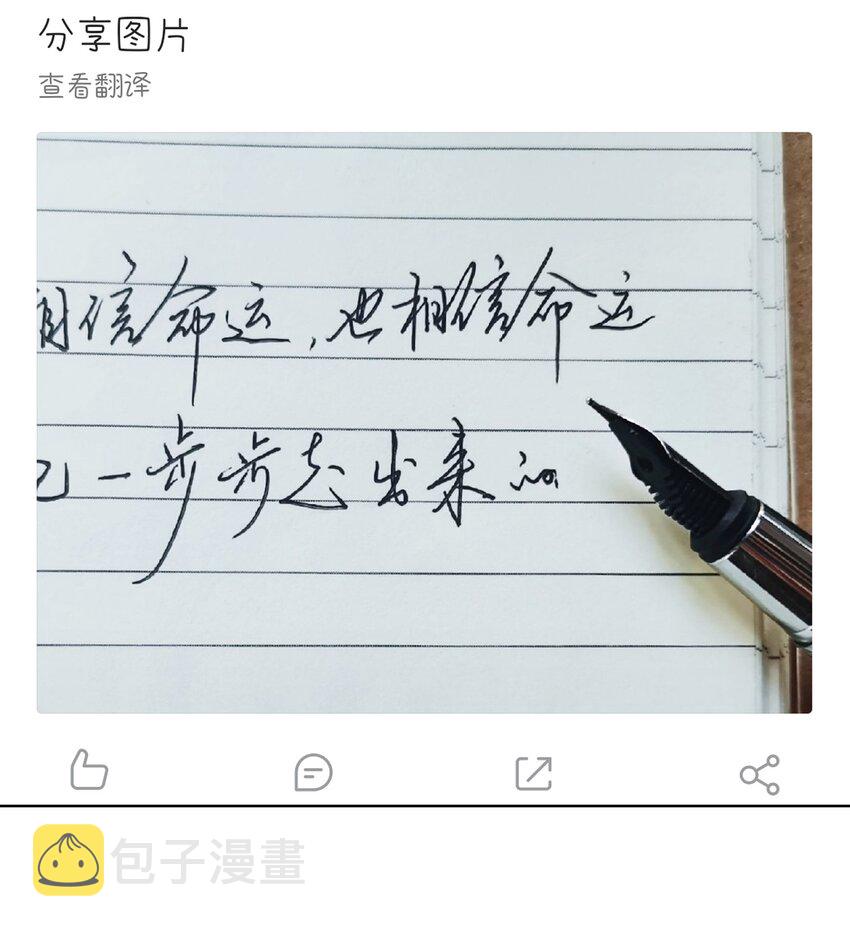 分享图片
查看翻译
相信命运，也相信命运
己一步步走出来的
包子漫畫